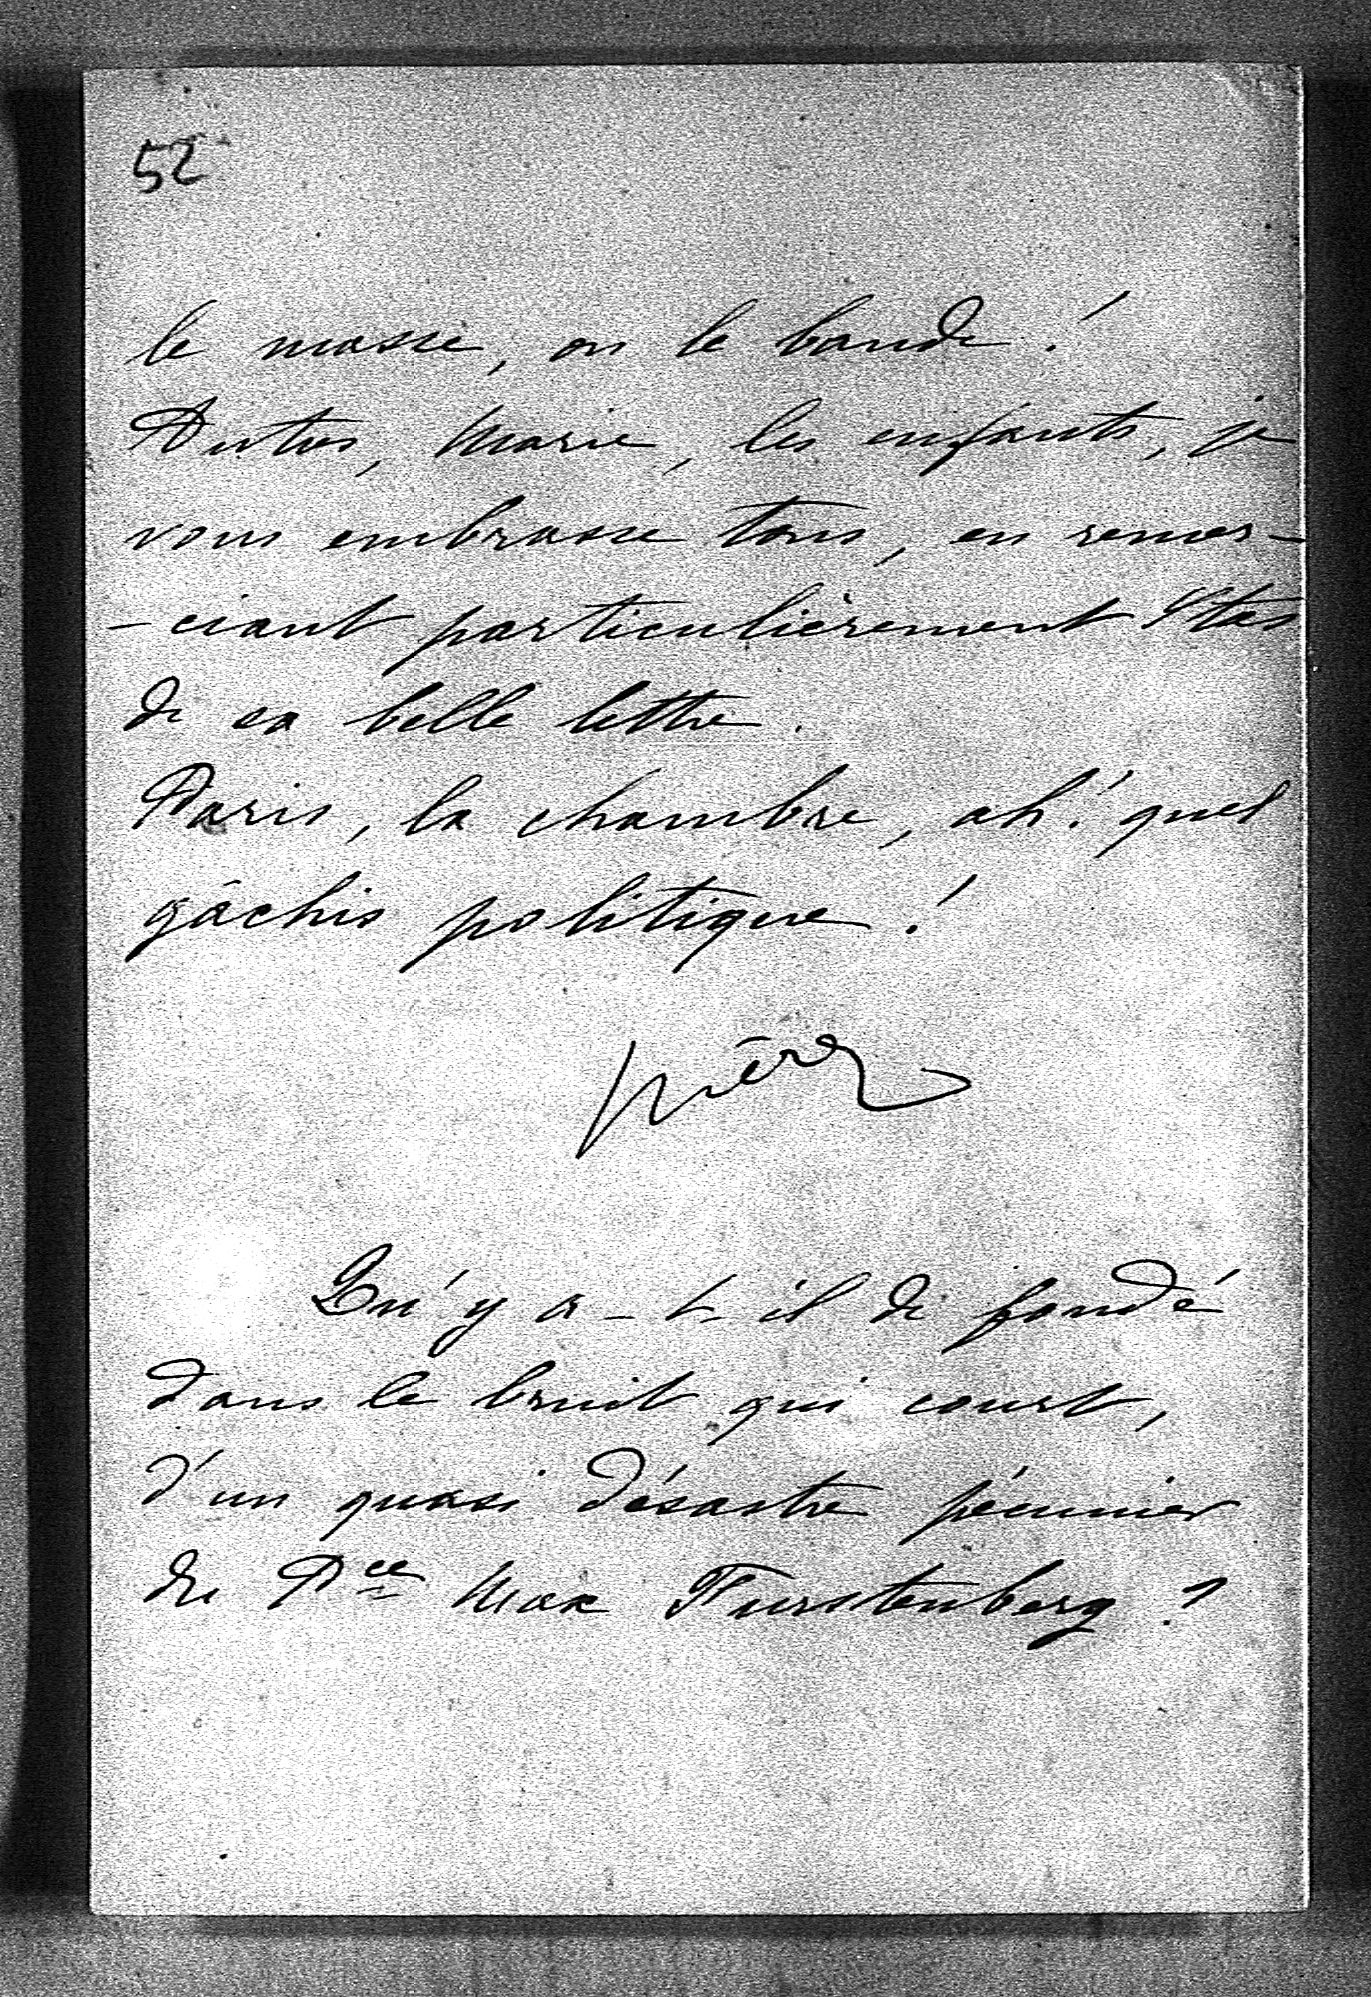 52
le masse, on le bande !
Marie, les enfants, je
vous embrasse tous, en remer-
-ciant particulièrement Stas
de sa belle lettre.
Paris, la chambre, ah! quel
gâchis politique !
Qu'y a-t-il de fondé
dans le bruit qui court,
d'un quasi désastre pécunier
du Pce Max Furstenberg ?